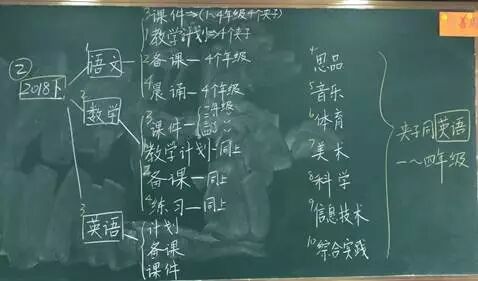 ②
2018下
1 语文
3 课件⇒(1~4年级4个夹子)
1 教学计划⇒4个夹子
2 备课—4个年级
4 晨诵—4个年级
2 数学
3 课件—
二年级
教学计划—同上
2 备课—同上
4 练习—同上
3 英语
计划
备课
课件
4 思品
5 音乐
6 体育
7 美术
8 科学
9 信息技术
10 综合实践
夹子同英语
一~四年级